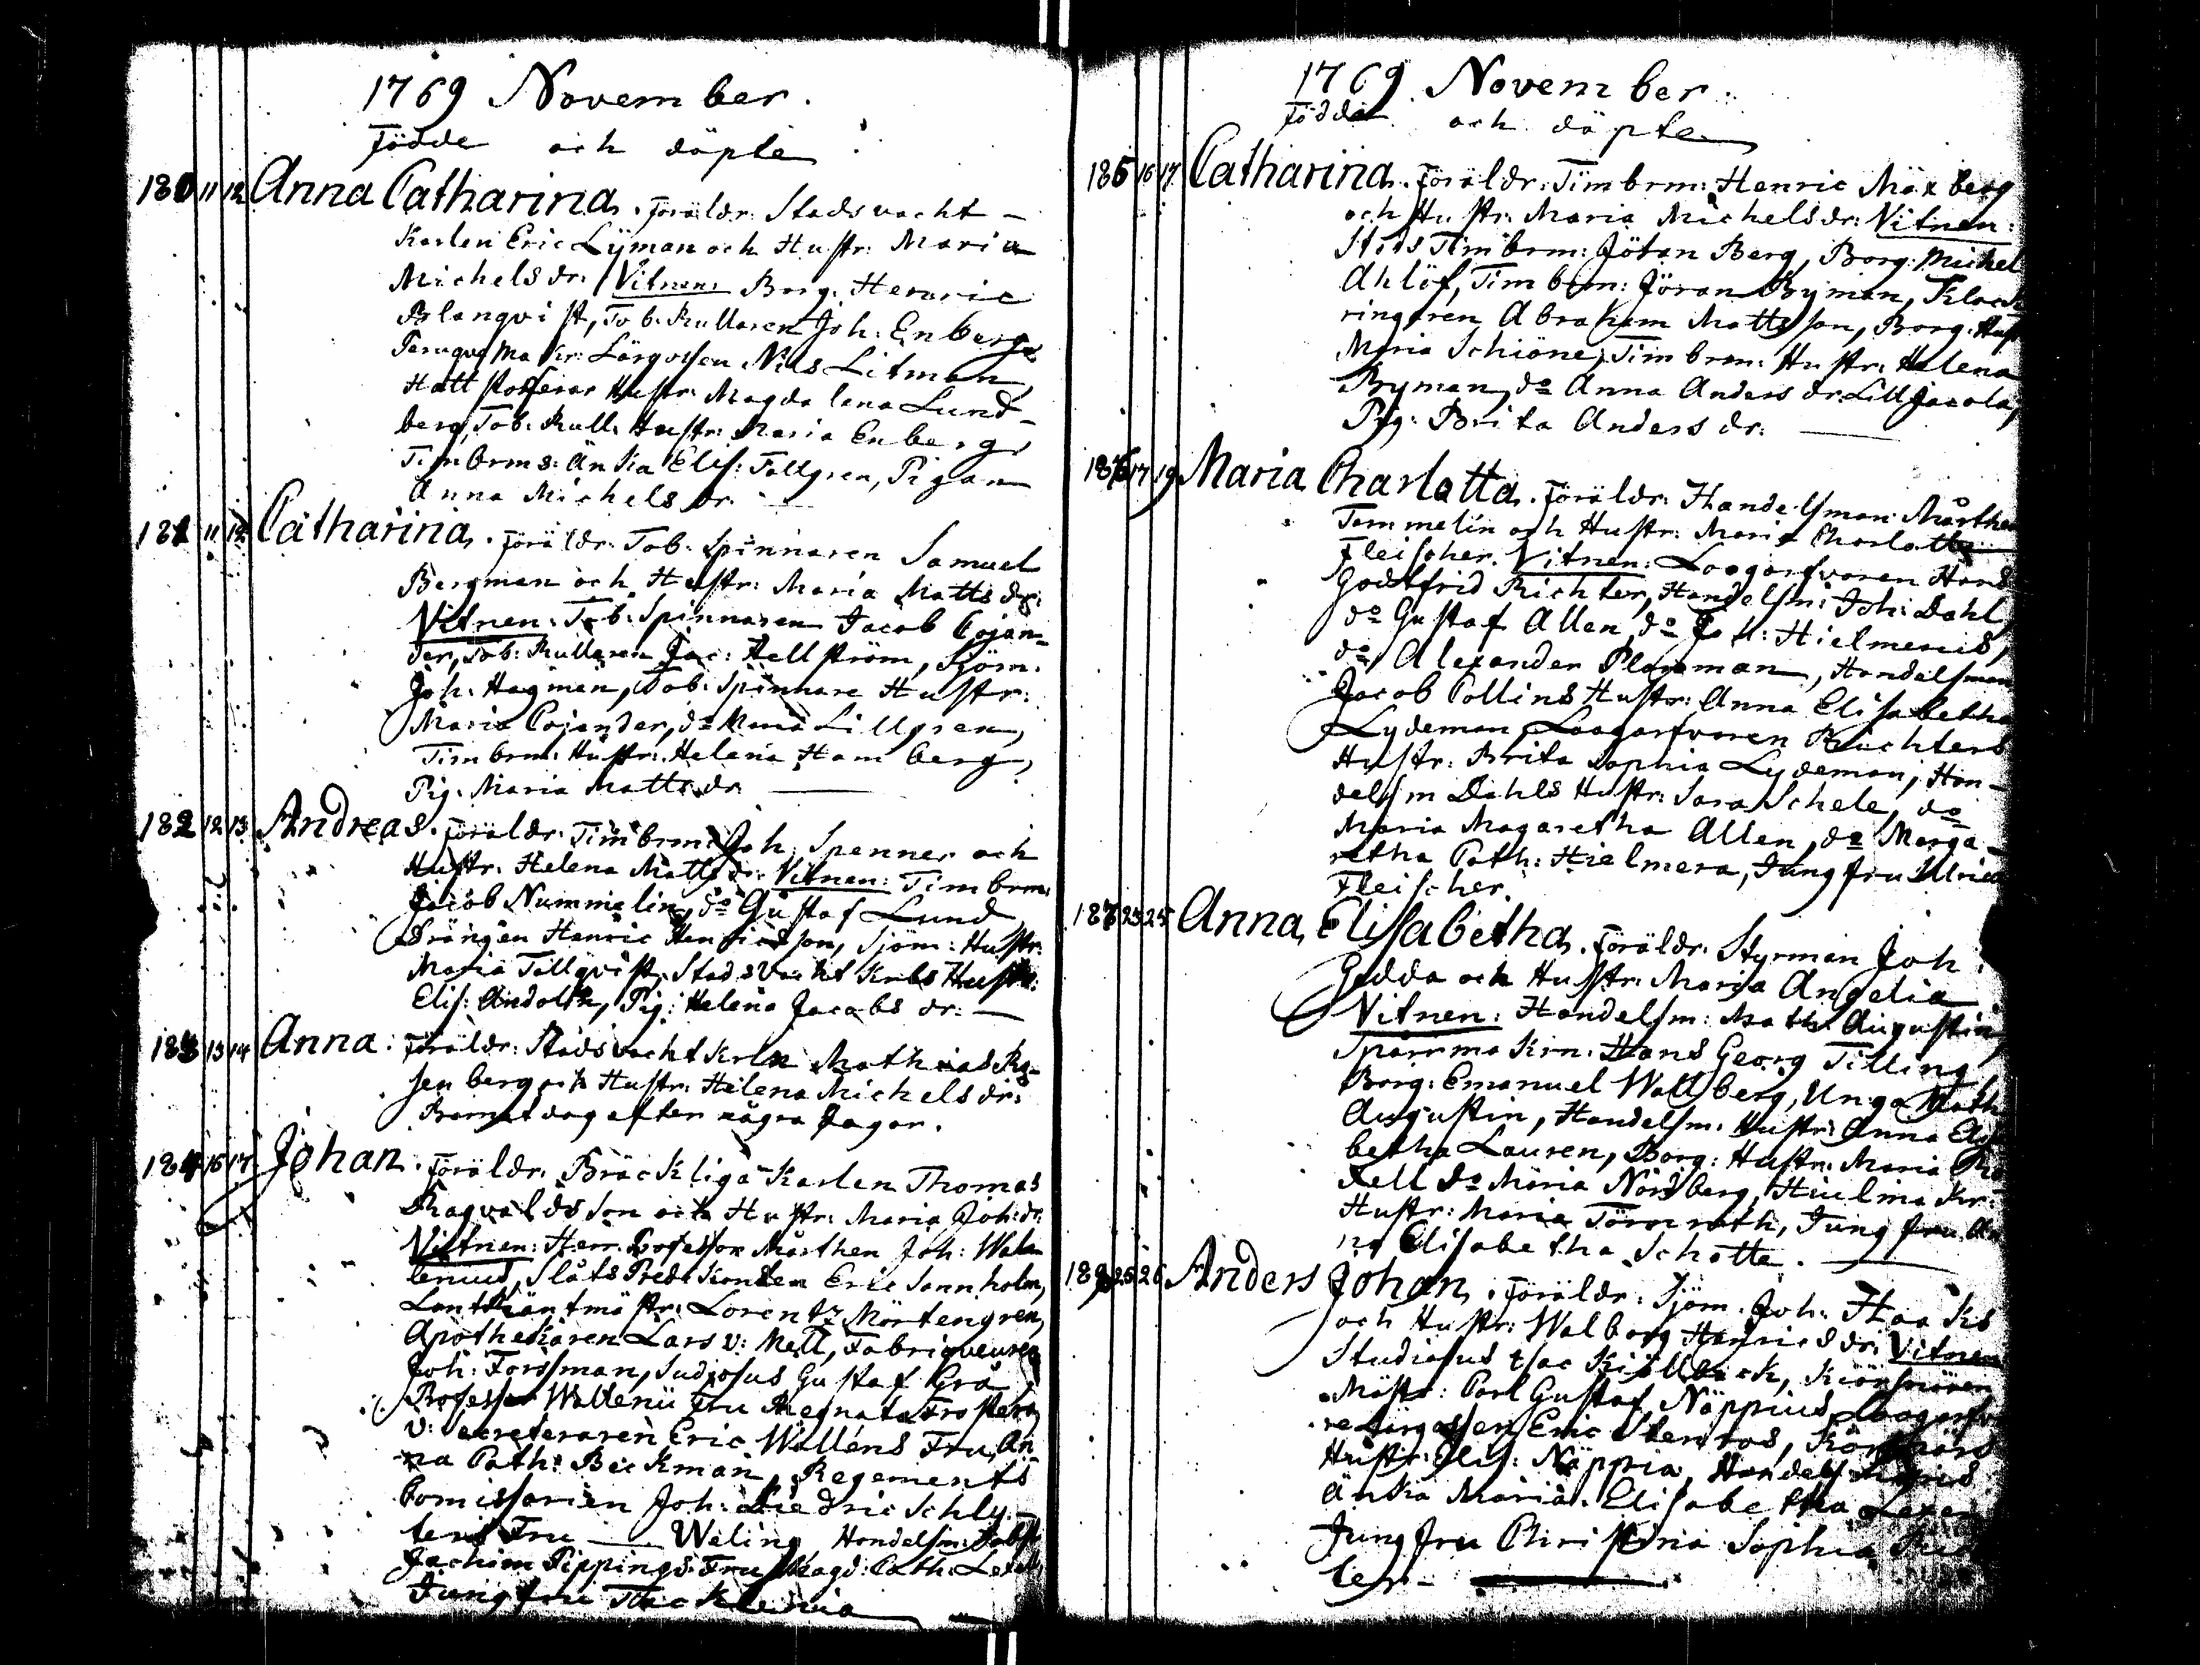 1769 November.
Födde och döpte
180 11 12 Anna Catharina. Föräldr: Stadsvacht-
Karlen Eric Lÿman och Hustr: Maria
Michelsdr: Vitnen: Borg. Henric
Blanqvist, Tob. Rullaren Joh: Enberg
Peruqvemakr: Lärgossen Nils Litman,
Hattstofferar Hustr: Magdalena Lund-
berg, Tob: Rull: Hustr: Maria Enberg,
Timbrms: Änkia Elis: Tallgren, Pigan
Anna Michelsdr.
181 11 12 Catharina. Föräldr: Tob. Spinnaren Samuel
Bergman och Hustr: Maria Mattsdr:
Vitnen: Tob: Spinnaren Jacob Cojan-
der, Tob: Rullaren Jac: Hellström, Sjöm:
Joh: Hagman, Tob: Spinnare Hustr:
Maria Cojander, do Maria Lillgren,
Timbrm: Hustr: Helena Hamberg,
Pig: Maria Mattsdr.
182 12 13 Andreas. Föräldr: Timbrm: Joh: Spenner och
Hustr: Helena Mattsdr: Vitnen: Timbrm:
Jacob Nummelin, do Gustaf Lund
Drängen Henric Henricsson, Sjöm: Hustr:
Maria Tallqvist, Stadsvacht Krls Hustr:
Elis: Andolin, Pig: Helena Jacobsdr:
183 13 14 Anna. Föräldr: Stadsvachtkrln Mathias Ro-
senberg och Hustr: Helena Michelsdr:
Barnet dog efter några dagar.
184 16 17 Johan. Föräldr: Bräckliga Karlen Thomas
Ragvaldsson och Hustr: Maria Joh:dr:
Vittnen: Herr Professor Mårthen Joh: Walle-
lenius, Slåts Predikanten Eric Sonnholm,
Lanträntmästr: Lorentz Mårtengren,
Apothekaren Lars v: Mell, Fabriqveuren
Joh: Forssman, Sudiosus Gustaf Grå,
Professor Wallenii Fru Regnata Froster
v: Secreteraren Eric Walléns Fru An-
na Cath: Beckman, Regements
Comissarien Joh: Diedric Schly-
ters Fru Weling, Handelsm:
Jochim Pippings Fru Magd: Cath: Lexell,
Jungfru
1769 November.
Födda och döpte
185 16 17 Catharina. Föräldr: Timbrm: Henric Mäxberg
och Hustr: Maria Michelsdr: Vitnen:
Stads Timbrm: Jöran Berg, Borg: Michel
Ahlöf, Timbrm: Jöran Ryman, Klock-
ringaren Abraham Mattsson, Borg: Hustr
Maria Schiöne, Timbrm: Hustr: Helena
Ryman, do Anna Andersdr: Lill Jacola,
Pig: Brita Andersdr.
186 17 19 Maria Charlotta. Föräldr: Handelsman Mårthen
Tammelin och Hustr: Maria Charlotta
Fleischer. Vitnen: Loogarfvaren Hans
Godtfrid Richter, Handelsm: Joh: Dahl,
do Gustaf Allen, do Joh: Hielmerus,
do Alexander Plagman, Handelsman
Jacob Collins Hustr: Anna Elisabetha
Lydeman, Loogarfvaren Richters
Hustr: Brita Sophia Lydeman, Han-
delsm Dahls Hustr: Sara Schele, do
Maria Magaretha Allen, do Marga-
retha Cath: Hielmera, Jungfru Ulrica
Fleischer.
187 23 25 Anna Elisabetha. Föräldr: Styrman Joh:
Gadda och Hustr: Maria Angelia
Vitnen: Handelsm: Math: Augustin,
Spårrmakrn: Hans Georg Tilling
Borg: Emanuel Wallberg, Unga Math
Augustin, Handelsm: Hustr: Anna Elisa-
betha Lauren, Borg: Hustr: Maria
do Maria Nordberg, Hiulmakr:
Hustr: Maria Törnroth, Jungfru An-
na Elisabetha Schotte.
188 25 26 Anders Johan. Föräldr: Sjöm: Joh: Haaks
och Hustr: Walborg Henricsdr: Vitnen
Studiosus Isac Kiällback, Kiörsnären
Mästr: Carl Gustaf Näppius, Loogarfva-
re Lärgossen Eric Stenroos, Körsnärs
Hustr: Elis: Näppia, Handels
Änkia Maria Elisabetha
Jungfru Christina Sophia Rich-
ter.